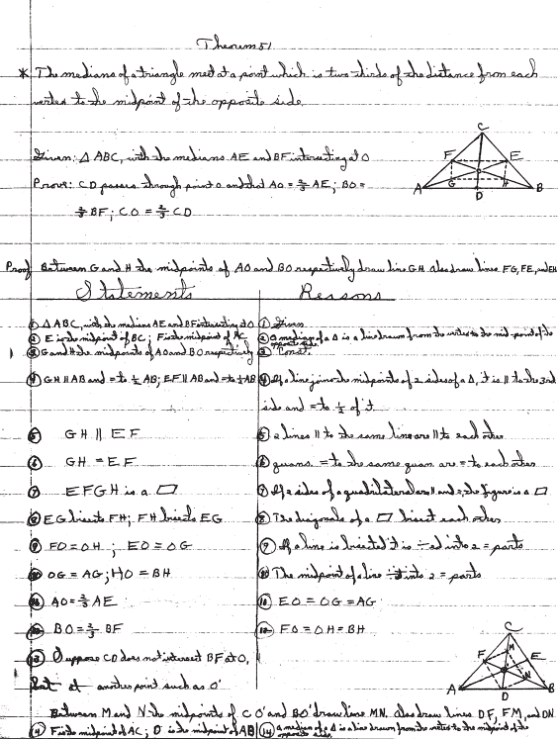 Theorem 51
* The medians of a triangle meet at a point which is two thirds of the distance from each
vertex to the midpoint of the opposite side.
Given: △ ABC, with the medians AE and BF intersecting at O
Prove: CD passes through point O and that AO = ⅔ AE; BO =
⅔ BF; CO = ⅔ CD
C
F E
O
G H
A D B
Proof Between G and H the midpoints of AO and BO respectively draw line GH. Also draw lines FG, FE, and EH
Statements Reasons
① △ ABC, with the medians AE and BF intersecting at O ① Given
② E is the midpoint of BC; F is the midpoint of AC ② A median of a △ is a line drawn from the vertex to the mid-point of the opposite side.
③ G and H the midpoints of AO and BO respectively ③ Const.
④ GH ∥ AB and = to ½ AB; EF ∥ AB and = to ½ AB ④ If a line joins the midpoints of 2 sides of a △, it is ∥ to the 3rd
side and = to ½ of it
⑤ GH ∥ EF ⑤ 2 lines ∥ to the same line are ∥ to each other
⑥ GH = EF ⑥ quans. = to the same quan are = to each other
⑦ EFGH is a ▱ ⑦ If 2 sides of a quadrilateral are ∥ and =, the figure is a ▱
⑧ EG bisects FH; FH bisects EG ⑧ The diagonals of a ▱ bisect each other
⑨ FO = OH ; EO = OG ⑨ If a line is bisected it is ÷ed into 2 = parts
⑩ OG = AG; HO = BH ⑩ The midpoint of a line ÷ it into 2 = parts
⑪ AO = ⅔ AE ⑪ EO = OG = AG
⑫ BO = ⅔ BF ⑫ FO = OH = BH
⑬ Suppose CD does not intersect BF at O,
but at another point such as O'
C
M
F E
N
A D B
Between M and N the midpoints of CO' and BO' draw line MN. Also draw lines DF, FM, and DN
⑭ F is the midpoint of AC; D is the midpoint of AB ⑭ A median of a △ is a line drawn from the vertex to the midpoint of the opposite side.